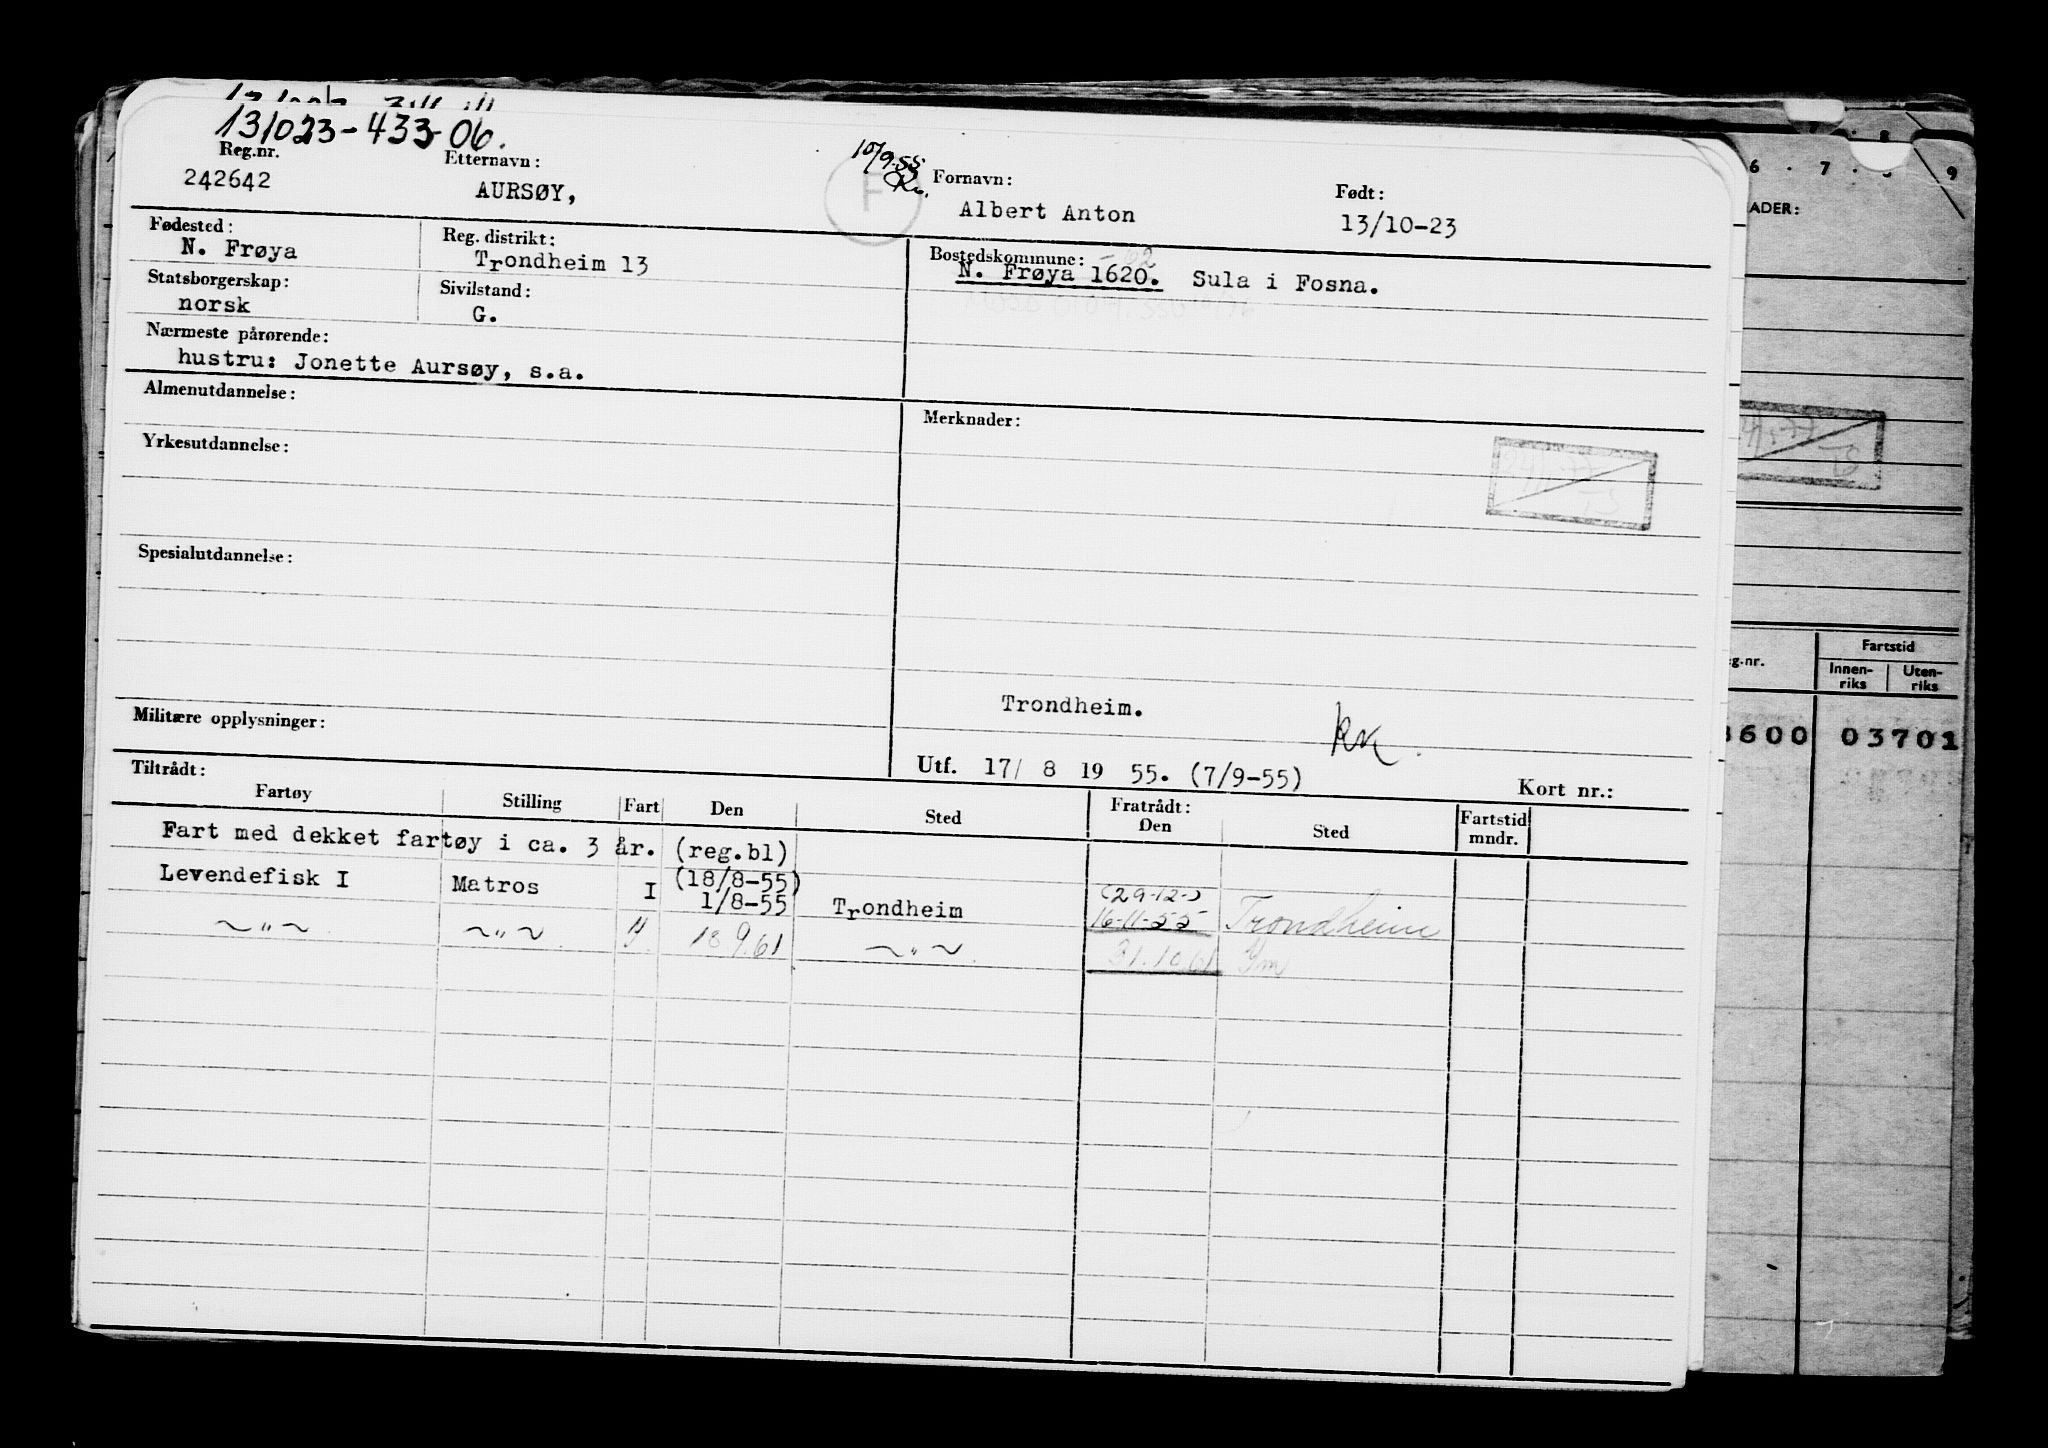 131023-433-06.
Reg.nr.
242642
Etternavn:
AURSØY,
10/9.55
F
Fornavn:
Albert Anton
Født:
13/10-23
Fødested:
N. Frøya
Reg. distrikt:
Trondheim 13
Bostedskommune: -62
N. Frøya 1620. Sula i Fosna.
Statsborgerskap:
norsk
Sivilstand:
G.
Nærmeste pårørende:
hustru: Jonette Aursøy, s.a.
Almenutdannelse:
Merknader:
Yrkesutdannelse:
TS
Spesialutdannelse:
Trondheim.
Militære opplysninger:
Utf. 17/ 8 19 55. (7/9-55)
Kort nr.:
Tiltrådt:
Fratrådt:
Fartøy Stilling Fart Den Sted Den Sted Fartstid mndr.
Fart med dekket fartøy i ca. 3 år. (reg.bl)
Levendefisk I Matros I (18/8-55) 1/8-55 Trondheim (29-12-) 16-11-55 Trondheim
~"~ ~"~ " 18 9.61 ~"~ 31.10.61 Ym
6 . 7 . 8 9
ADER:
TS
g.nr.
Fartstid
Innen-riks
Uten-riks
600 03701